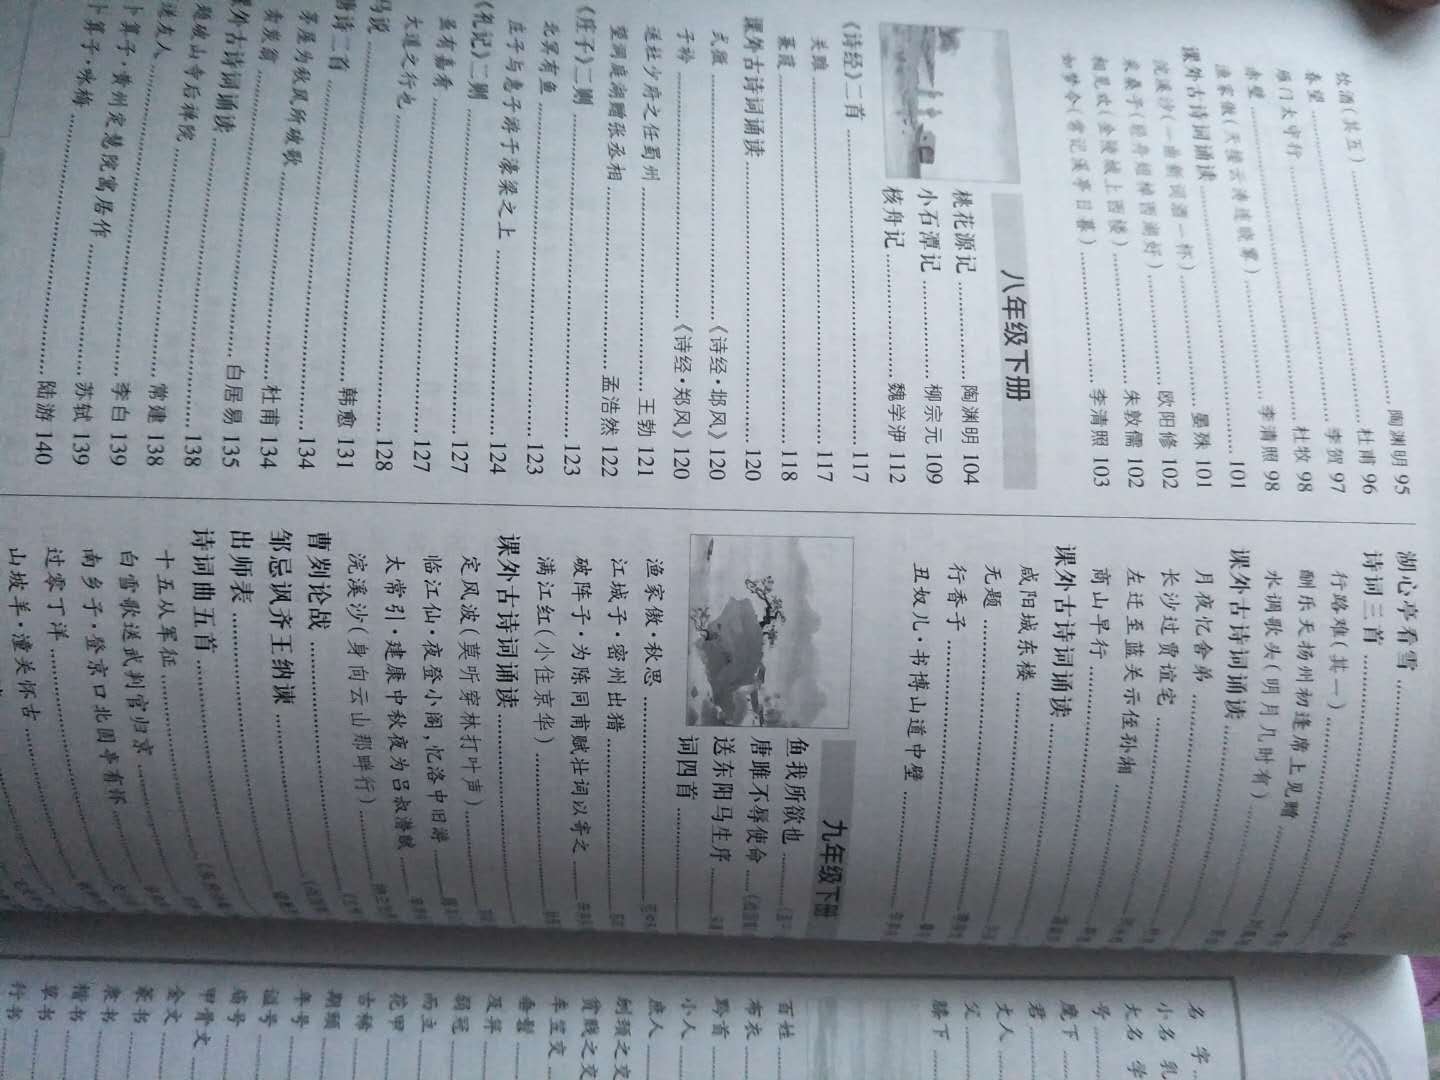 饮酒(其五)……陶渊明 95
春望……杜甫 96
雁门太守行……李贺 97
赤壁……杜牧 98
渔家傲(天接云涛连晓雾)……李清照 98
课外古诗词诵读……101
浣溪沙(一曲新词酒一杯)……晏殊 101
采桑子(轻舟短棹西湖好)……欧阳修 102
相见欢(金陵城上西楼)……朱敦儒 102
如梦令(常记溪亭日暮)……李清照 103
八年级下册
桃花源记……陶渊明 104
小石潭记……柳宗元 109
核舟记……魏学洢 112
《诗经》二首……117
关雎……117
蒹葭……118
课外古诗词诵读……120
式微……《诗经·邶风》120
子衿……《诗经·郑风》120
送杜少府之任蜀州……王勃 121
望洞庭湖赠张丞相……孟浩然 122
《庄子》二则……123
北冥有鱼……123
庄子与惠子游于濠梁之上……124
《礼记》二则……127
虽有嘉肴……127
大道之行也……128
马说……韩愈 131
唐诗二首……134
茅屋为秋风所破歌……杜甫 134
卖炭翁……白居易 135
课外古诗词诵读……138
题破山寺后禅院……常建 138
送友人……李白 139
卜算子·黄州定慧院寓居作……苏轼 139
卜算子·咏梅……陆游 140
湖心亭看雪……
诗词三首……
行路难(其一)……
酬乐天扬州初逢席上见赠……
水调歌头(明月几时有)……
课外古诗词诵读……
月夜忆舍弟……
长沙过贾谊宅……
左迁至蓝关示侄孙湘……
商山早行……
课外古诗词诵读……
咸阳城东楼……
无题……
行香子……
丑奴儿·书博山道中壁……
九年级下册
鱼我所欲也……
唐雎不辱使命……
送东阳马生序……
词四首……
渔家傲·秋思……
江城子·密州出猎……
破阵子·为陈同甫赋壮词以寄之……
满江红(小住京华)……
课外古诗词诵读……
定风波(莫听穿林打叶声)……
临江仙·夜登小阁,忆洛中旧游……
太常引·建康中秋夜为吕叔潜赋……
浣溪沙(身向云山那畔行)……
曹刿论战……
邹忌讽齐王纳谏……
出师表……
诗词曲五首……
十五从军征……
白雪歌送武判官归京……
南乡子·登京口北固亭有怀……
过零丁洋……
山坡羊·潼关怀古……
名 字……
小名 乳
大名 学
号……
麾下……
君……
丈人……
父……
膝下……
百姓……
布衣……
黔首……
小人……
庶人……
刎颈之交
贫贱之交
车笠交……
垂髫……
及笄……
弱冠……
而立……
花甲……
古稀……
期颐……
年号……
谥号……
庙号……
甲骨文……
金文……
篆书……
隶书……
楷书……
草书……
行书……